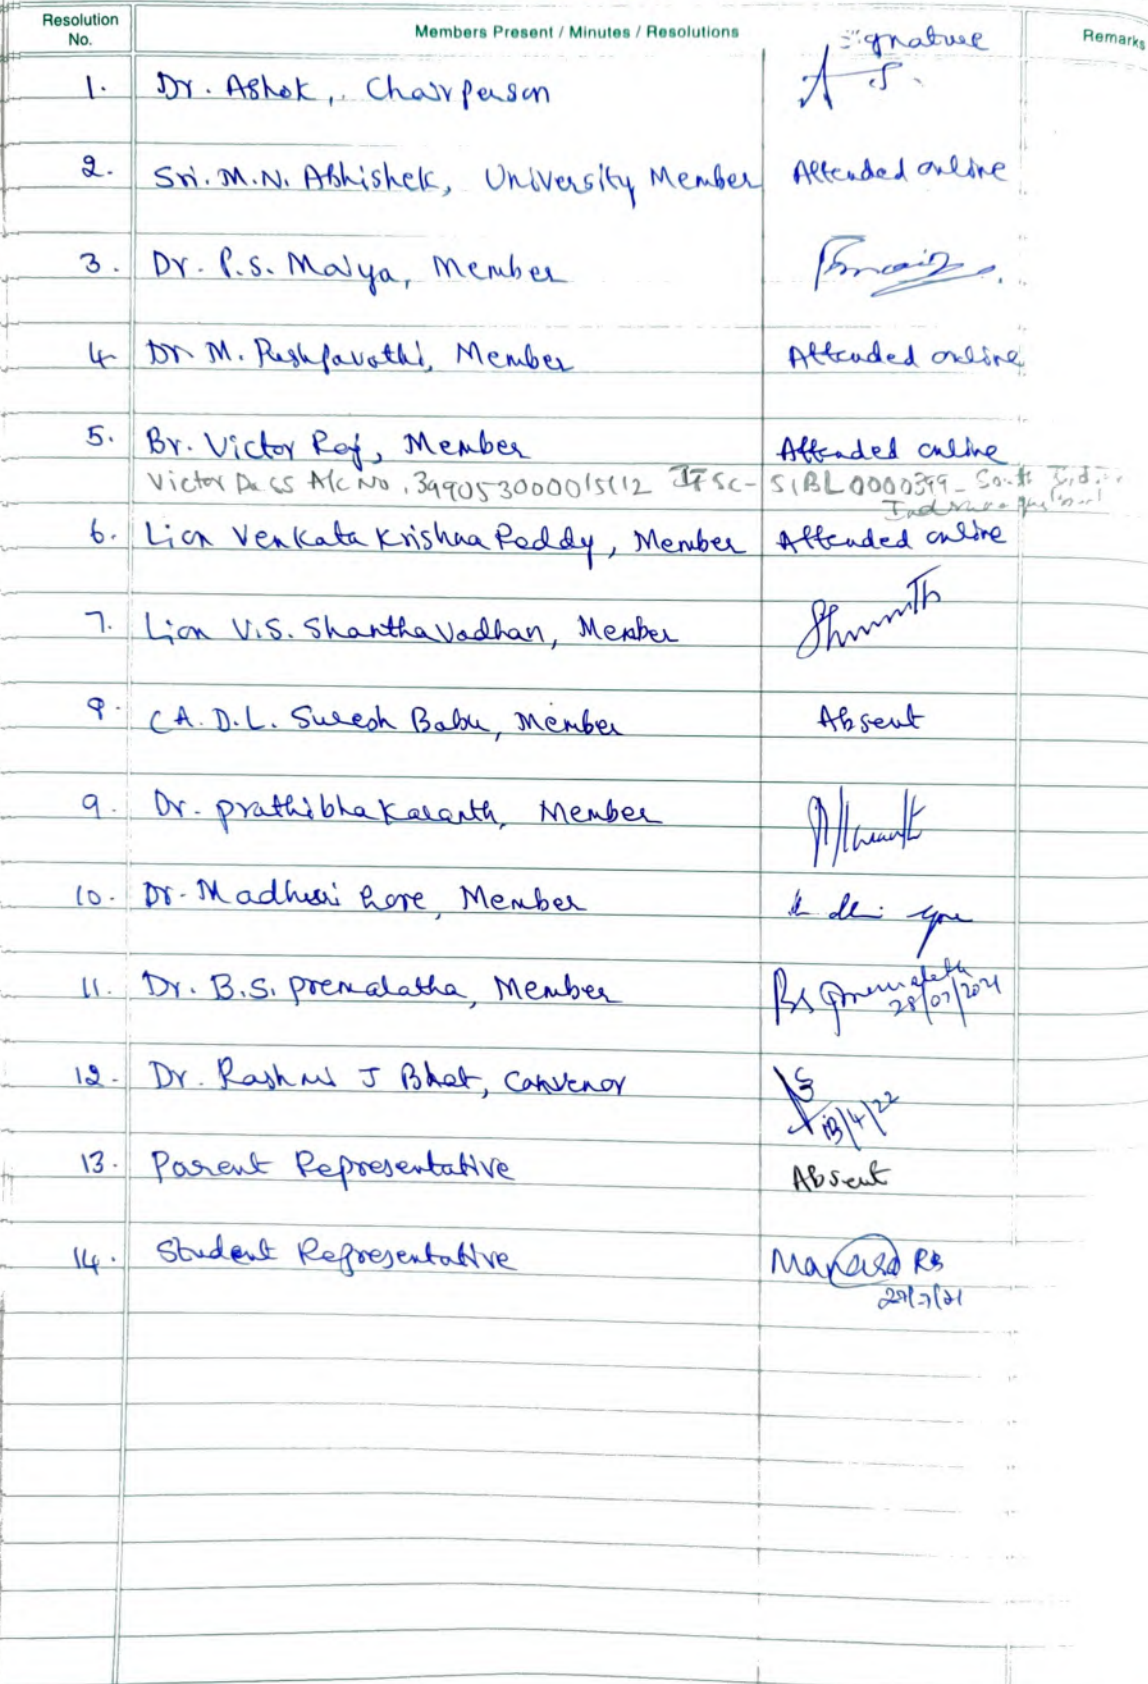 Resolution No. Members Present / Minutes / Resolutions Signature Remarks
1. Dr. Ashok, Chairperson
2. Sri. M.N. Abhishek, University Member Attended online
3. Dr. P.S. Maiya, Member
4 Dr M. Pushpavathi, Member Attended online
5. Br. Victor Raj, Member Attended online
Victor A/c No. IFSC- SIBL0000399
6. Lion Venkata Krishna Reddy, Member Attended online
7. Lion V.S. Shantha Vadhan, Member
8. CA. D.L. Suresh Babu, Member Absent
9. Dr. prathibha Karanth, Member
10. Dr. Madhuri Gore, Member
11. Dr. B.S. premalatha, Member Bs Premalatha
28/07/2021
12. Dr. Rashmi J Bhat, Convenor
13/4/22
13. Parent Representative Absent
14. Student Representative Manasa RB